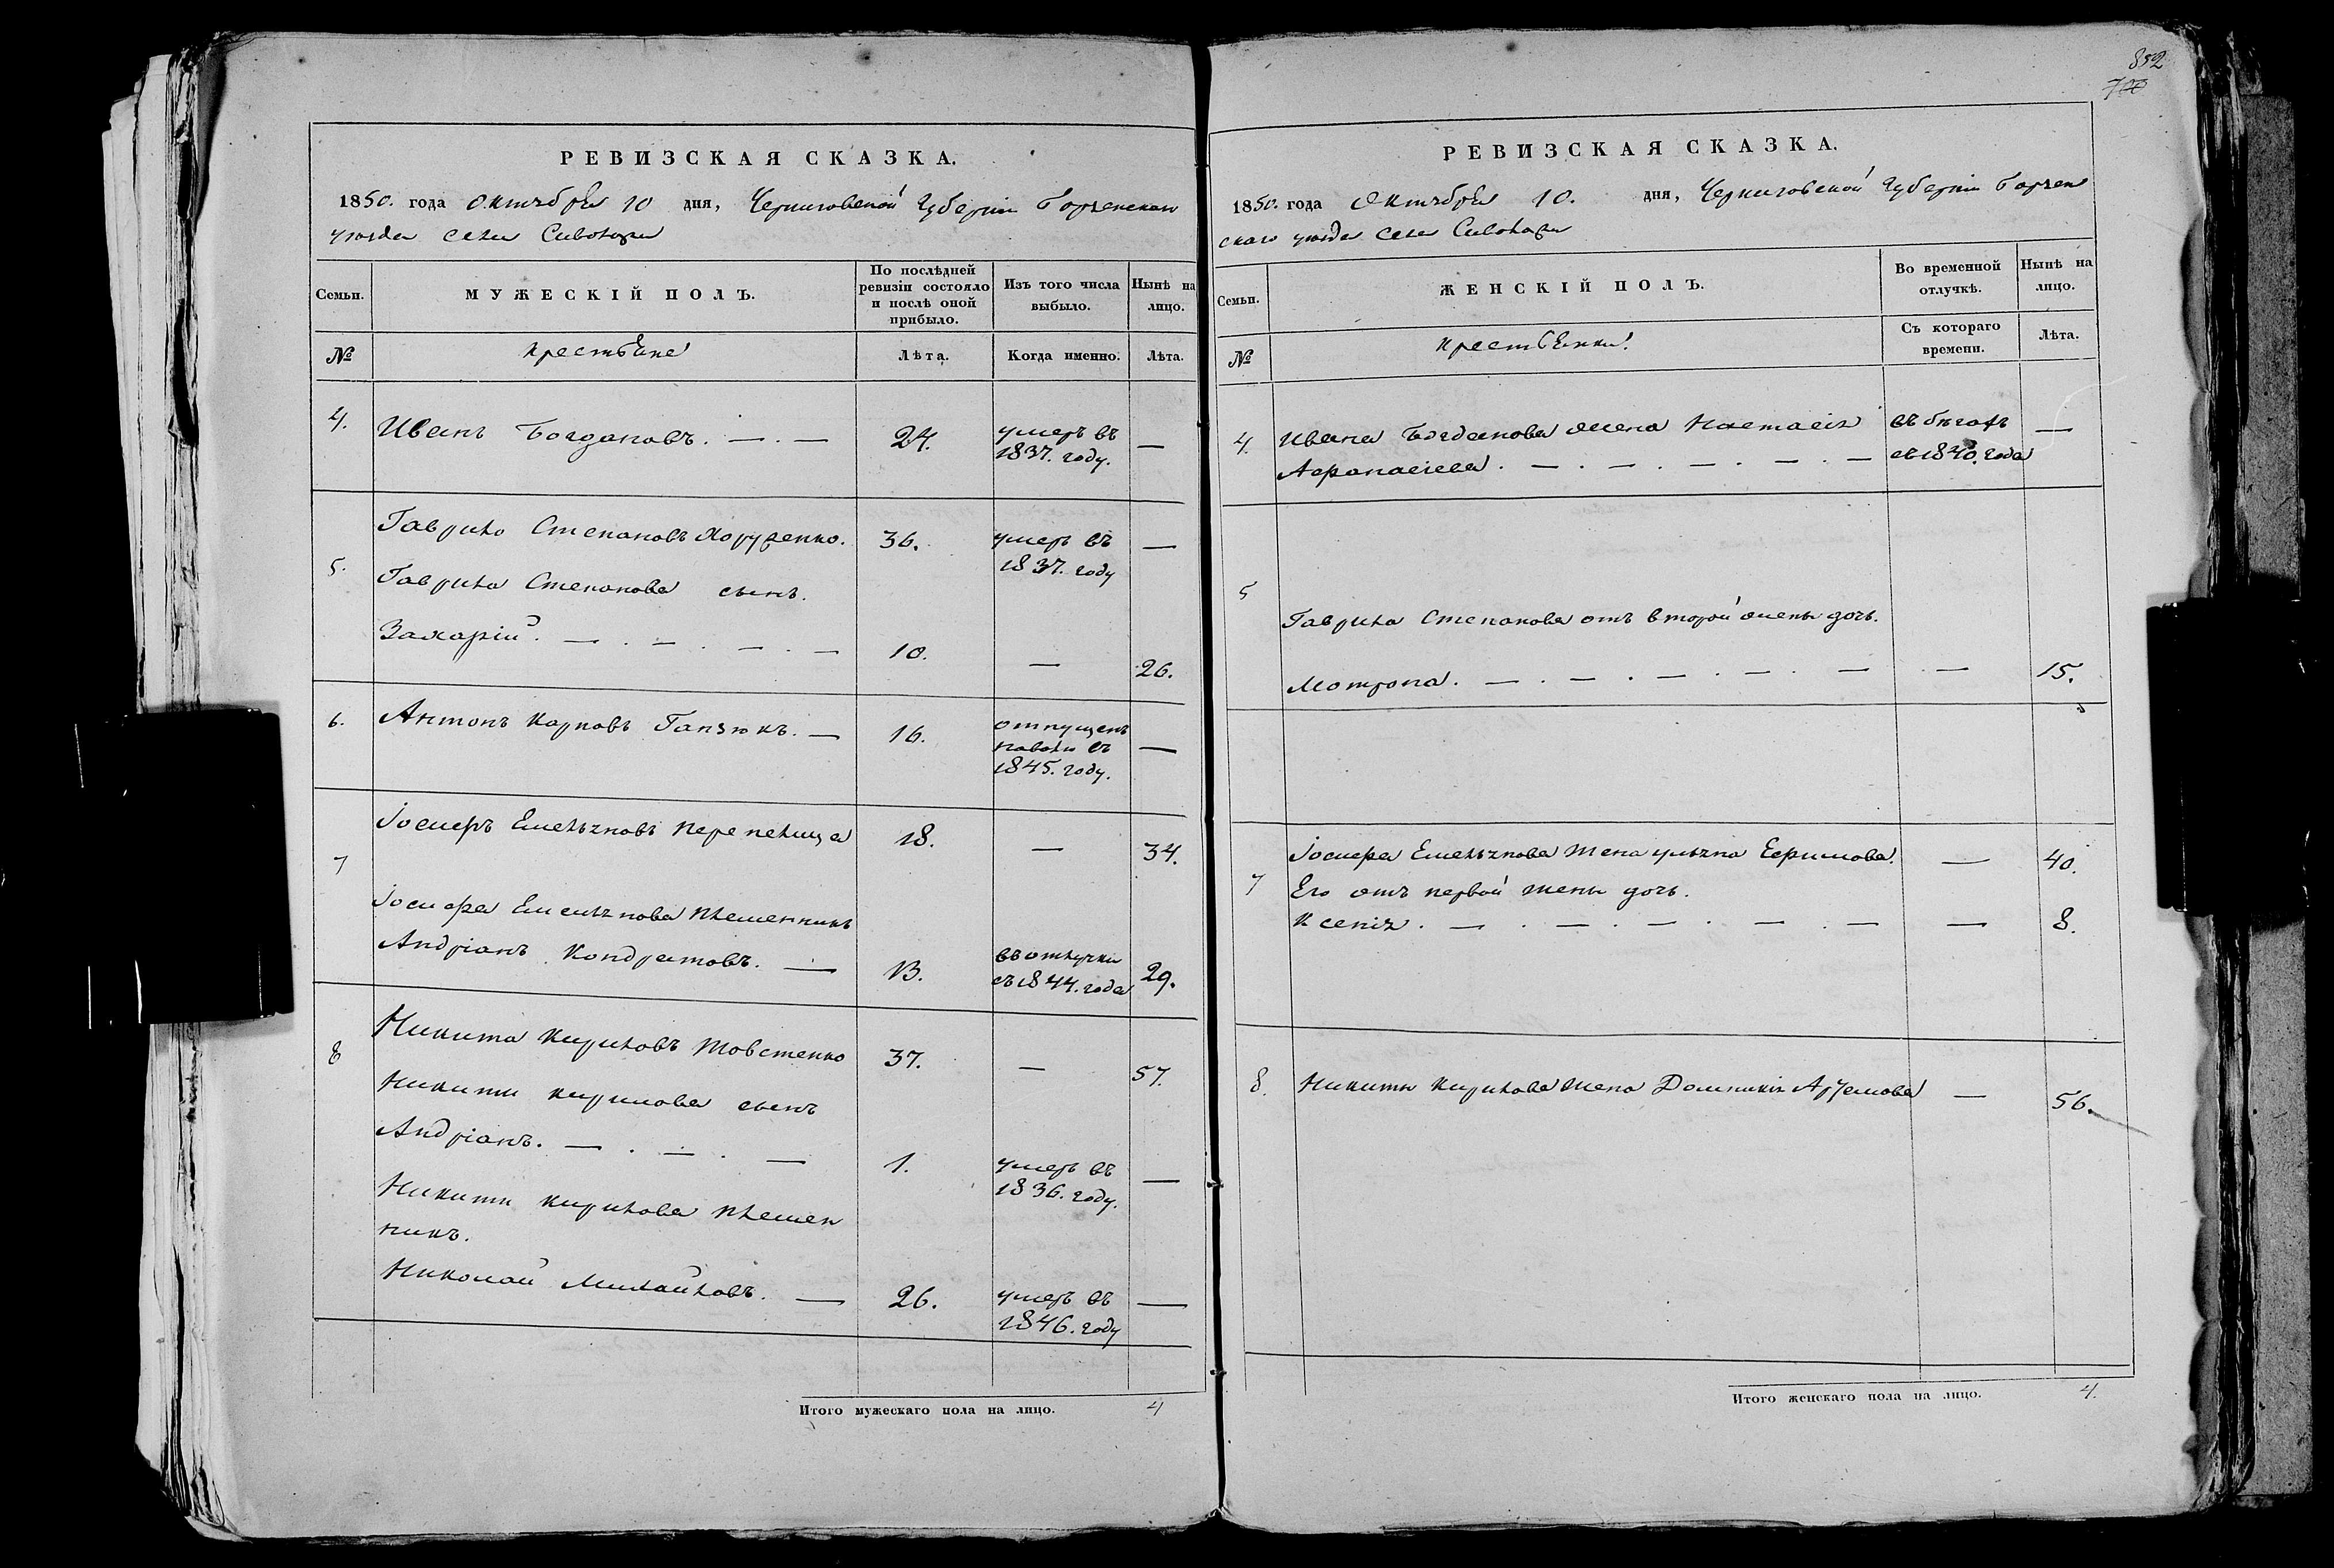 РЕВИЗСКАЯ СКАЗКА.
1850. года Октября 10 дня, Черниговской Губернiи Борзенскаго
уѣзда села
Семьи.
МУЖЕСКIЙ ПОЛЪ.
По послѣдней
ревизiи состояло
и послѣ оной
прибыло.
Изъ того числа
выбыло.
Нынѣ на
лицо.
№
Крестьяне
Лѣта.
Когда именно.
Лѣта.
4. Иванъ Богдановъ. — . — 24. умеръ въ —
1837. году.
Гаврило Степановъ 36. умеръ въ —
1837. году
5. Гаврила Степанова сынъ.
Захарiй. — . — . — . — 10. — 26.
6. Антонъ Карповъ Гапзюкъ. — 16. отпущенъ
наволю въ —
1845. году.
7 Iосифъ Емельяновъ Перепелица 18. — 34.
Iосифа Емельянова племенникъ
Андрiанъ Кондратовъ. — 13. въ отлучки
съ 1844. года 29.
8 Никита Кириловъ Товстенко 37. — 57.
Никиты Кирилова сынъ
Андрiанъ. — . — . — 1. умеръ въ —
1836. году.
Никиты Кирилова племен
никъ.
Николай Михайловъ. — 26. умеръ въ —
1846. году
Итого мужескаго пола на лицо. 4
852
700
РЕВИЗСКАЯ СКАЗКА.
1850. года Октября 10. дня, Черниговской Губернiи Борзен
скаго уѣзда села
Семьи.
ЖЕНСКIЙ ПОЛЪ.
Во временной
отлучкѣ.
Нынѣ на
лицо.
№
Крестьянки.
Съ котораго
времени.
Лѣта.
4. Ивана Богданова жена Настасiя въ бѣгахъ —
Афанасiева. — . — . — . — . — съ 1840. года
5 Гаврила Степанова отъ второй жены дочь.
Мотрона. — . — . — . — . — . — 15.
7 Iосифа Емельянова жена Ульяна Ефимова. — 40.
Его отъ первой жены дочь.
Ксенiя. — . — . — . — . — — 8.
8. Никиты Кирилова жена Домникiя Артемова — 56.
Итого женскаго пола на лицо. 4.